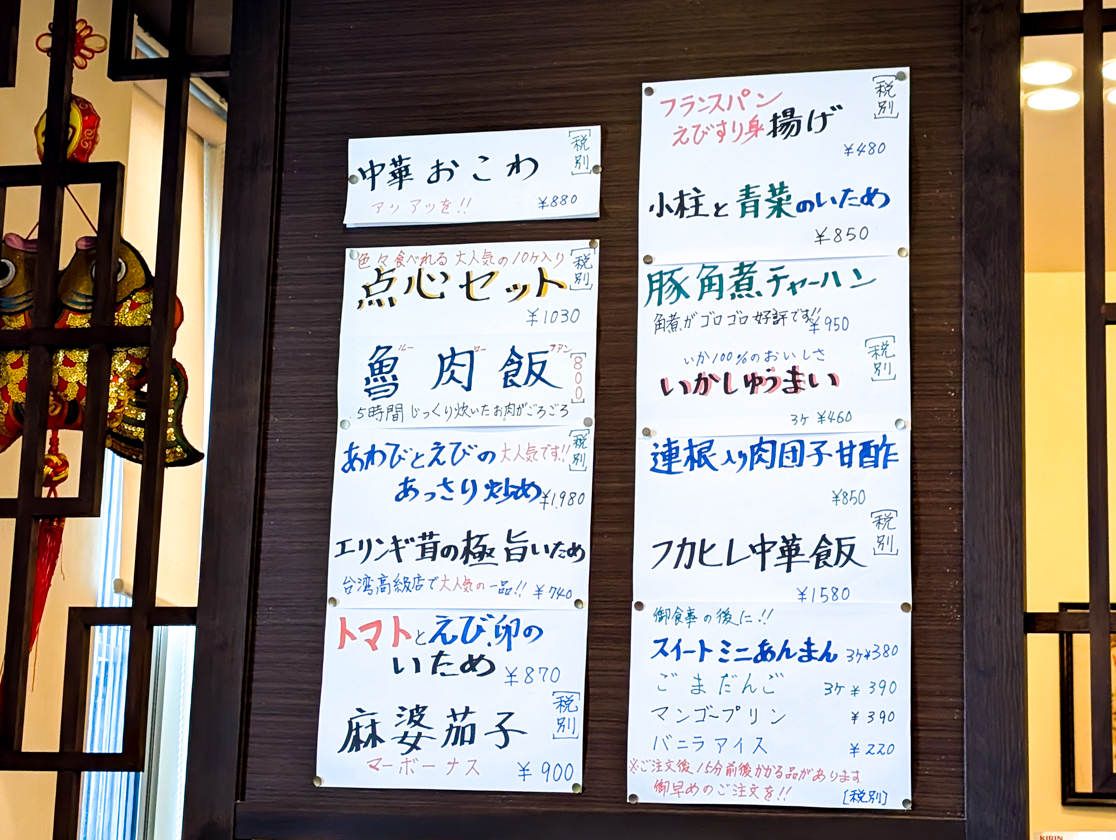 中華おこわ
[税別]
アツアツを!!
¥880
色々食べれる大人気の10ケ入り
点心セット
[税別]
¥1030
魯肉飯
ルーローファン
[800]
5時間じっくり炊いたお肉がごろごろ
あわびとえびの
大人気です!!
[税別]
あっさり炒め
¥1,980
エリンギ茸の極旨いため
台湾高級店で大人気の一品!!
¥740
トマトとえび、卵の
いため
¥870
[税別]
麻婆茄子
マーボーナス
¥900
フランスパン
[税別]
えびすり身揚げ
¥480
小柱と青菜のいため
¥850
豚角煮チャーハン
角煮がゴロゴロ好評です!!
¥950
いか100%のおいしさ
[税別]
いかしゅうまい
3ケ ¥460
連根入り肉団子甘酢
¥850
[税別]
フカヒレ中華飯
¥1580
御食事の後に!!
スイートミニあんまん 3ケ¥380
ごまだんご 3ケ¥390
マンゴープリン ¥390
バニラアイス ¥220
※ご注文後、15分前後かかる品があります
御早めのご注文を!!
[税別]
KIRIN